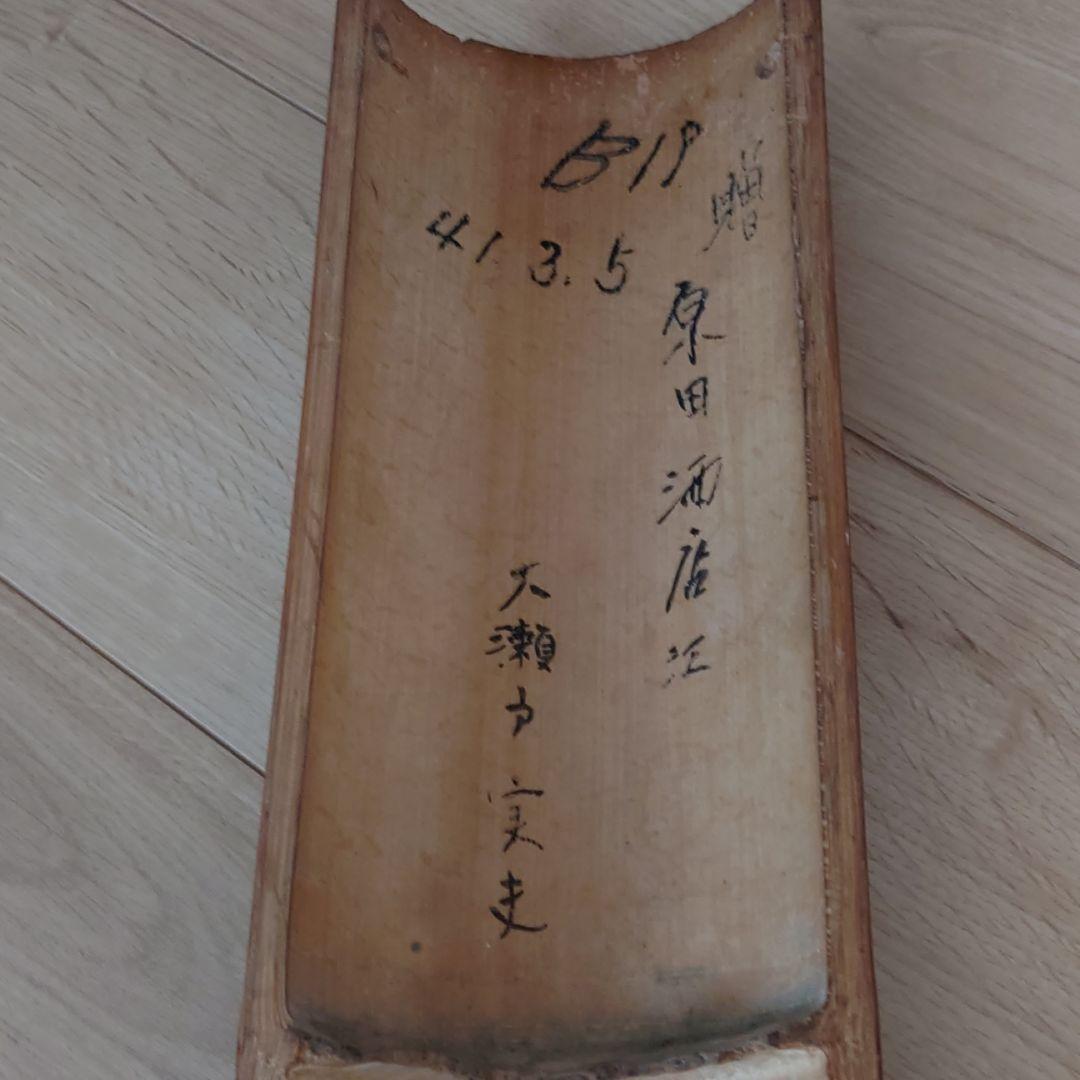 B19
41.3.5
贈
原田酒店
大瀬戸 実夫